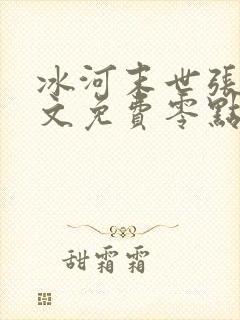 冰河末世張
文免費零點
甜霜霜